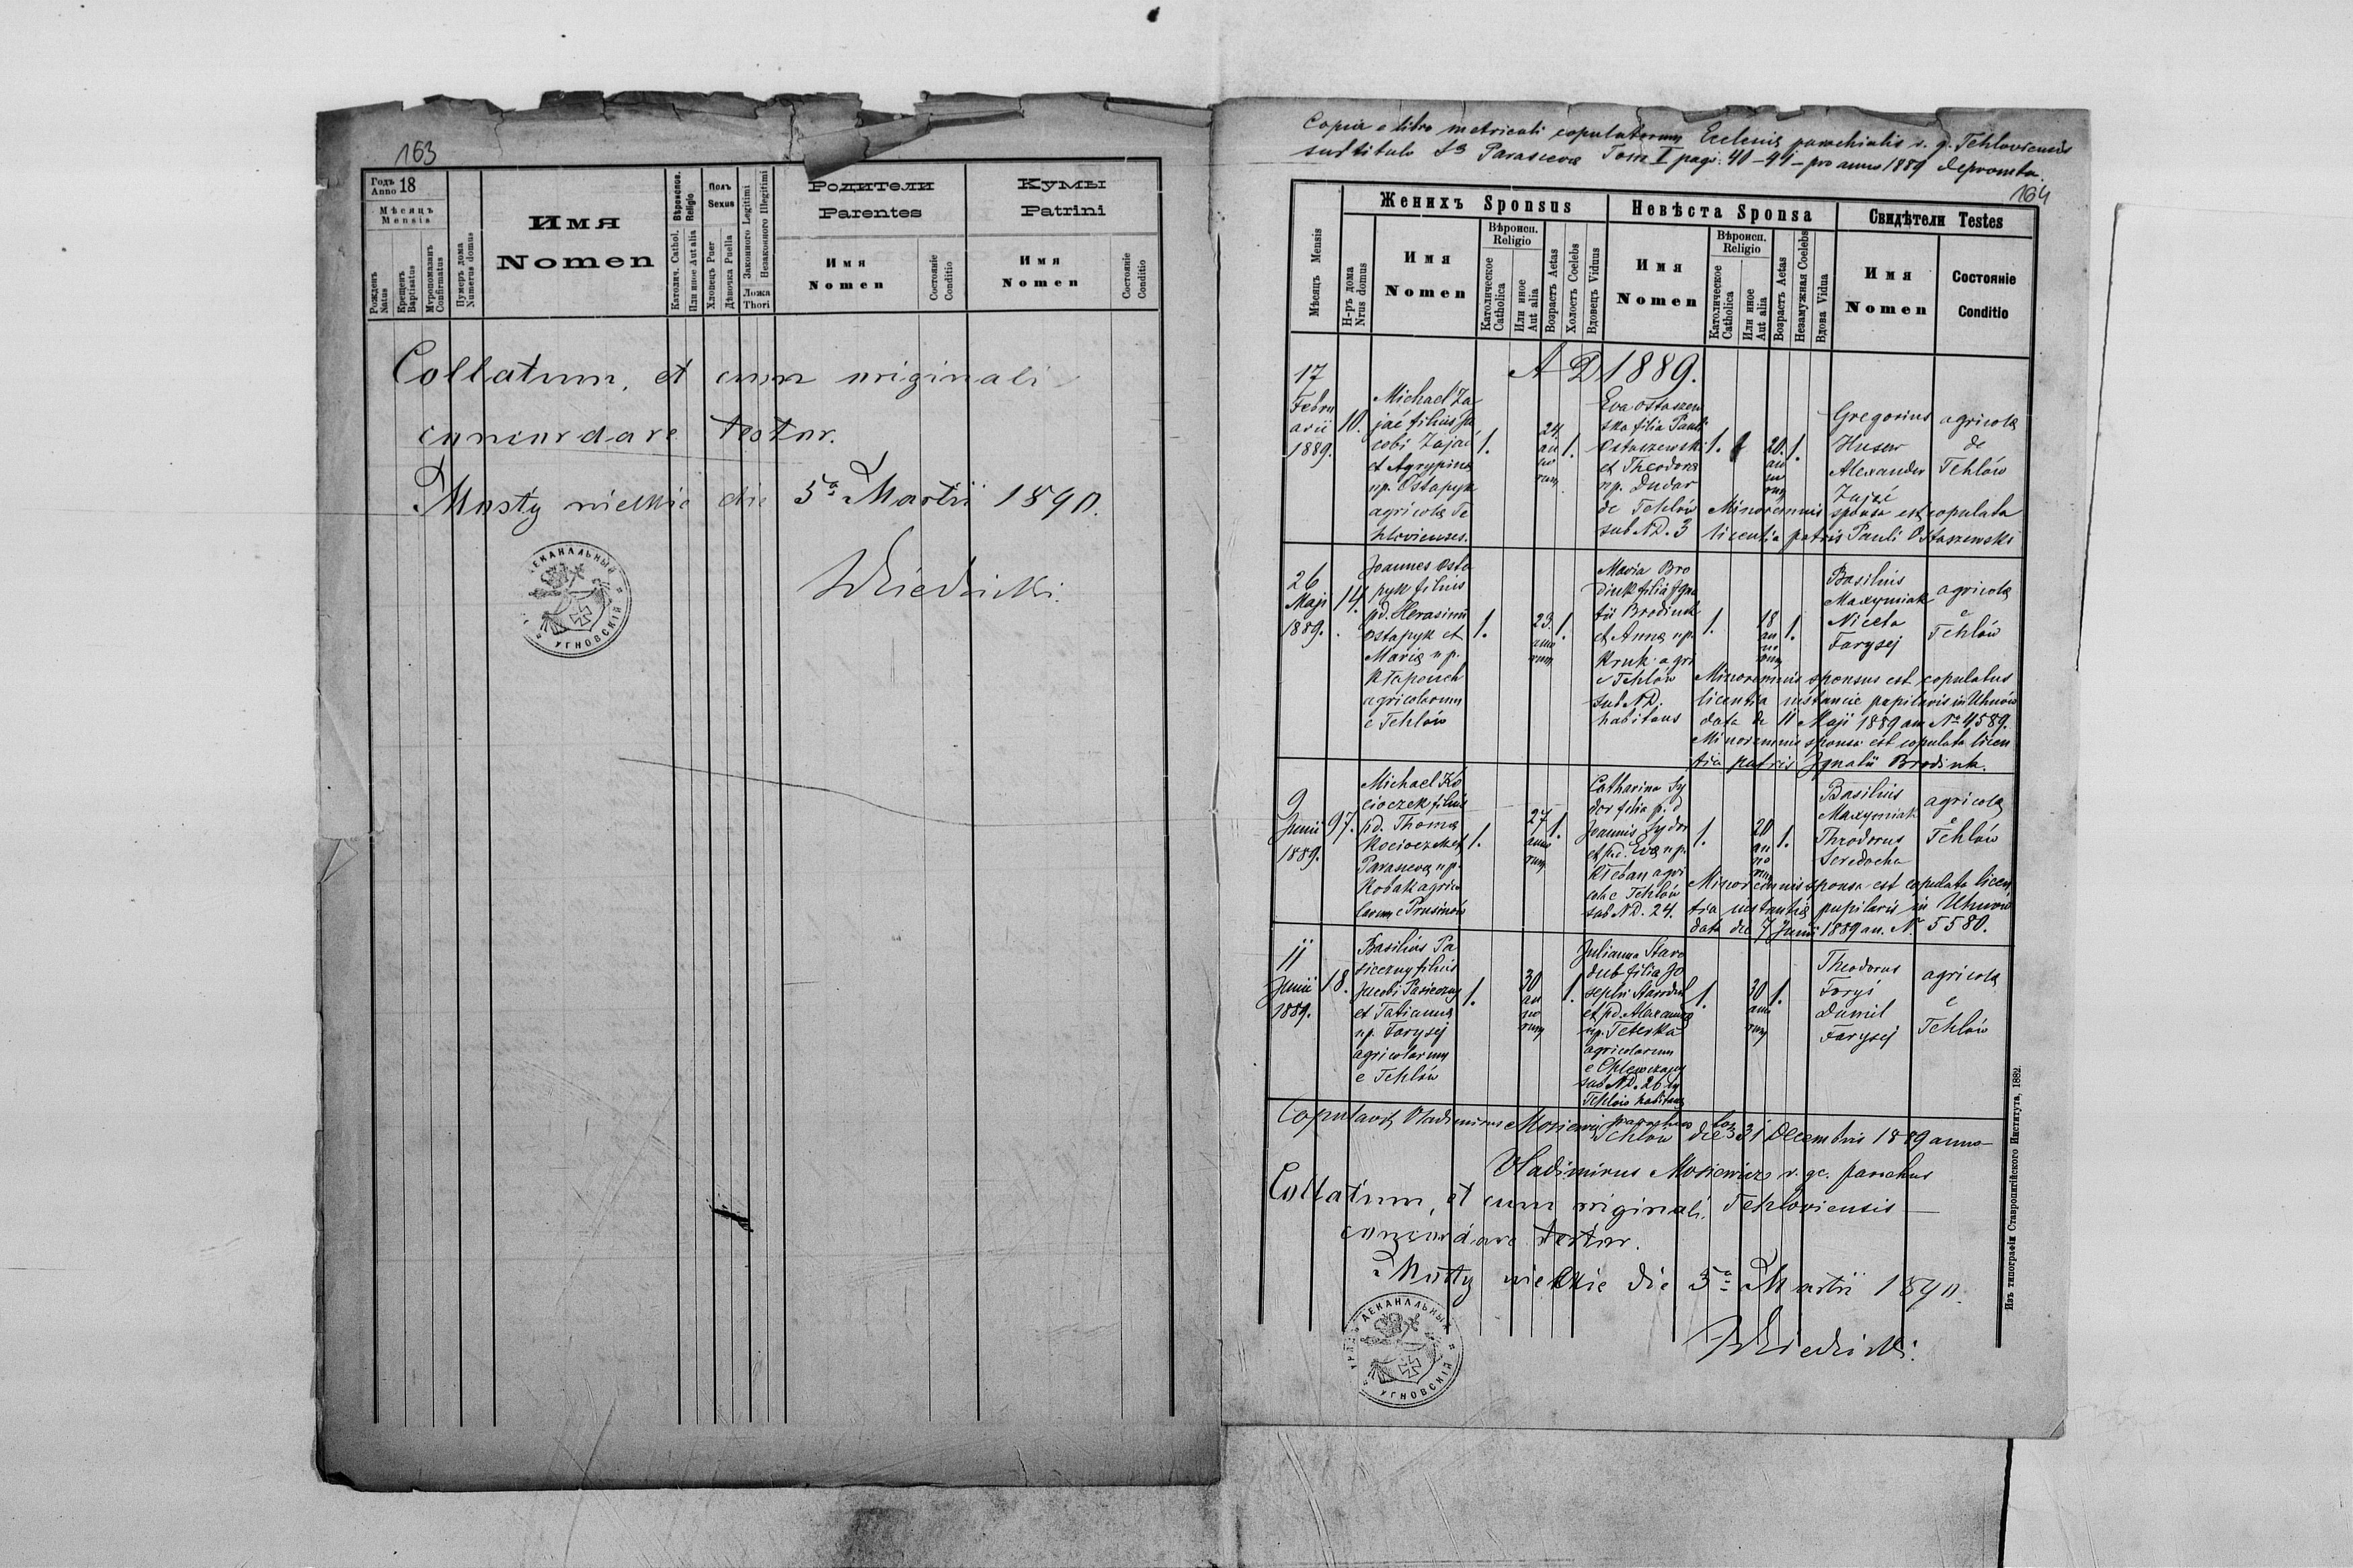 163
Годъ 18
Anno
Мѣсяцъ
Mensis
Рожденъ
Natus
Крещенъ
Baptisatus
Мѵропомазанъ
Confirmatus
Нумеръ дома
Numerus domus
Имя
Nomen
Вѣроиспов.
Religio
Католич. Cathol.
Или иное Aut alia
Полъ
Sexus
Хлопецъ Puer
Дѣвочка Puella
Законного Legitimi
Незаконного Illegitimi
Ложа
Thori
Родители
Parentes
Имя
Nomen
Состояніе
Conditio
Кумы
Patrini
Имя
Nomen
Состояніе
Conditio
Collatum, et cum originali
concordare testor.
Mosty wielkie die 5ª Martii 1890.
ДЕКАНАЛЬНЫЙ
УГНОВСКІЙ
Copia e libro metricali copulatorum Ecclesiæ parochialis r. g. Tehloviensis
sub titulo Sª Parascevæ Tom I pag. 40-41 - pro anno 1889 deprompta.
164
Мѣсяцъ Mensis
Н-ръ дома
Nrus domus
Женихъ Sponsus
Имя
Nomen
Вѣроисп.
Religio
Католическое
Catholica
Или иное
Aut alia
Возрастъ Aetas
Холостъ Coelebs
Вдовецъ Viduus
Невѣста Sponsa
Имя
Nomen
Вѣроисп.
Religio
Католическое
Catholica
Или иное
Aut alia
Возрастъ Aetas
Незамужная Coelebs
Вдова Vidua
Свидѣтели Testes
Имя
Nomen
Состояніе
Conditio
A D 1889.
17
Febru
arii
1889.
10.
Michael Za
jać filius Ja
cobi Zajać
et Agrypinæ
np. Ostapyk
agricolæ Te
hlovienses.
1.
24.
an
no
rum
1.
Eva Ostaszew
ska filia Pauli
Ostaszewski
et Theodoræ
np. Dudar
de Tehlów
sub ND. 3
1.
20.
an
no
rum
1.
Gregorius
Husar
Alexander
Zajać
agricolæ
de
Tehlów
Minorennis sponsa est copulata
licentia patris Pauli Ostaszewski
26
Maji
1889.
14.
Joannes Osta
pyk filius
pd. Herasimi
Ostapyk et
Mariæ np.
Kłapouch
agricolarum
e Tehlów
1.
23.
anno
rum
1.
Maria Bro
diuk filia Igna
tii Brodiuk
et Annæ np.
Kruk agri
e Tehlów
sub ND.
habitans
1.
18
an
no
rum
1.
Basilius
Maxymiak
Niceta
Farysej
agricolæ
e
Tehlów
Minorennis sponsus est copulatus
licentia instancie pupilaris in Uhnów
data de 11 Maji 1889 an. Nº 4589.
Minorennis sponsa est copulata licen
tia patris Ignatii Brodiuk.
9
Junii
1889.
97.
Michael Ko
cioczek filius
pd. Thomæ
Kocioczek et
Parascevæ np.
Kobak agrico
larum e Prusinów
1.
27
anno
rum
1.
Catharina Sy
dor filia p. d
Joannis Sydor
et pd. Evæ np.
Kleban agri
colæ Tehlów
sub ND. 24.
1.
20
an
no
rum
1.
Basilius
Maxymiak
Theodorus
Seredocha
agricolæ
e
Tehlów
Minorennis sponsa est copulata licen
tia instantiæ pupilaris in Uhnów
data die 7 Junii 1889 an. N. 5580.
11
Junii
1889.
18.
Basilius Pa
siczny filius
Jacobi Pasieczny
et Tatiannæ
np. Farysej
agricolarum
e Tehlów
1.
30
an
no
rum
1.
Julianna Staro
dub filia Jo
sephi Starodub
et pd. Alexandræ
np. Teterka
agricolarum
e Chlewczany
sub ND. 26 in
Tehlów habitans
1.
30
anno
rum
1.
Theodorus
Foryś
Daniil
Farysej
agricolæ
e
Tehlów
Copulavit Vladimirus Mosiewicz parochus loci
Tehlów die 31 Decembris 1889 anno
Vladimirus Mosiewicz r. gc. parochus
Tehloviensis
Collatum, et cum originali
concordare testor.
Mosty wielkie die 5ª Martii 1890.
ДЕКАНАЛЬНЫЙ
УГНОВСКІЙ
Изъ типографіи Ставропигійского Института, 1882.